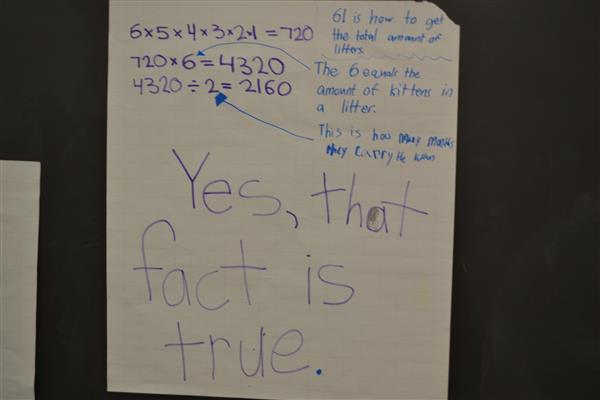 6×5×4×3×2×1 = 720
720×6 = 4320
4320 ÷ 2 = 2160
6! is how to get
the total amount of
litters.
The 6 equals the
amount of kittens in
a litter.
This is how many months
they carry the kittens
Yes, that
fact is
true.